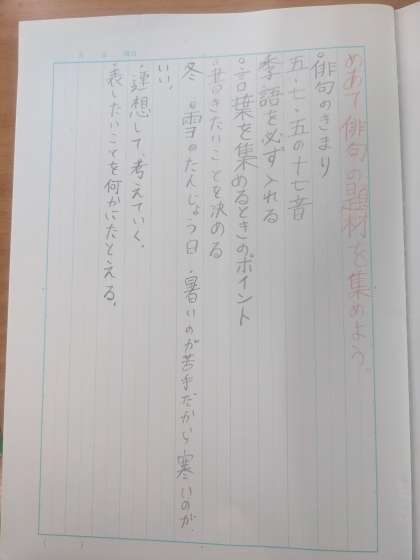 めあて 俳句の題材を集めよう。
。俳句のきまり
五・七・五の十七音
季語を必ず入れる
。言葉を集めるときのポイント
・書きたいことを決める
冬 。雪。たんじょう日・暑いのが苦手だから寒いのが、
いい。
・連想して、考えていく。
・表したいことを何かにたとえる。